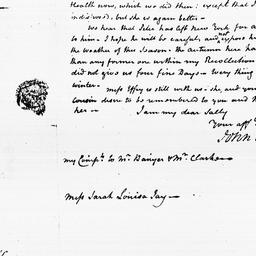 Health now, which we did then; except that I
indisposd. but she is again better—
We hear that Selie has left New York for a
to him. I hope he will be careful, and not expose h
the weather of this Season. the autumn here ha
than any former one within my Recollection
did not give us four fine Days— Every thing
winter—
Miss Effy is still with us. she, and your
Cousin desire to be remembered to you and M
her— I am my dear Sally
Your aff
John
my Compts to Mr Banyer & Mr. Clarkson
Miss Sarah Louisa Jay—